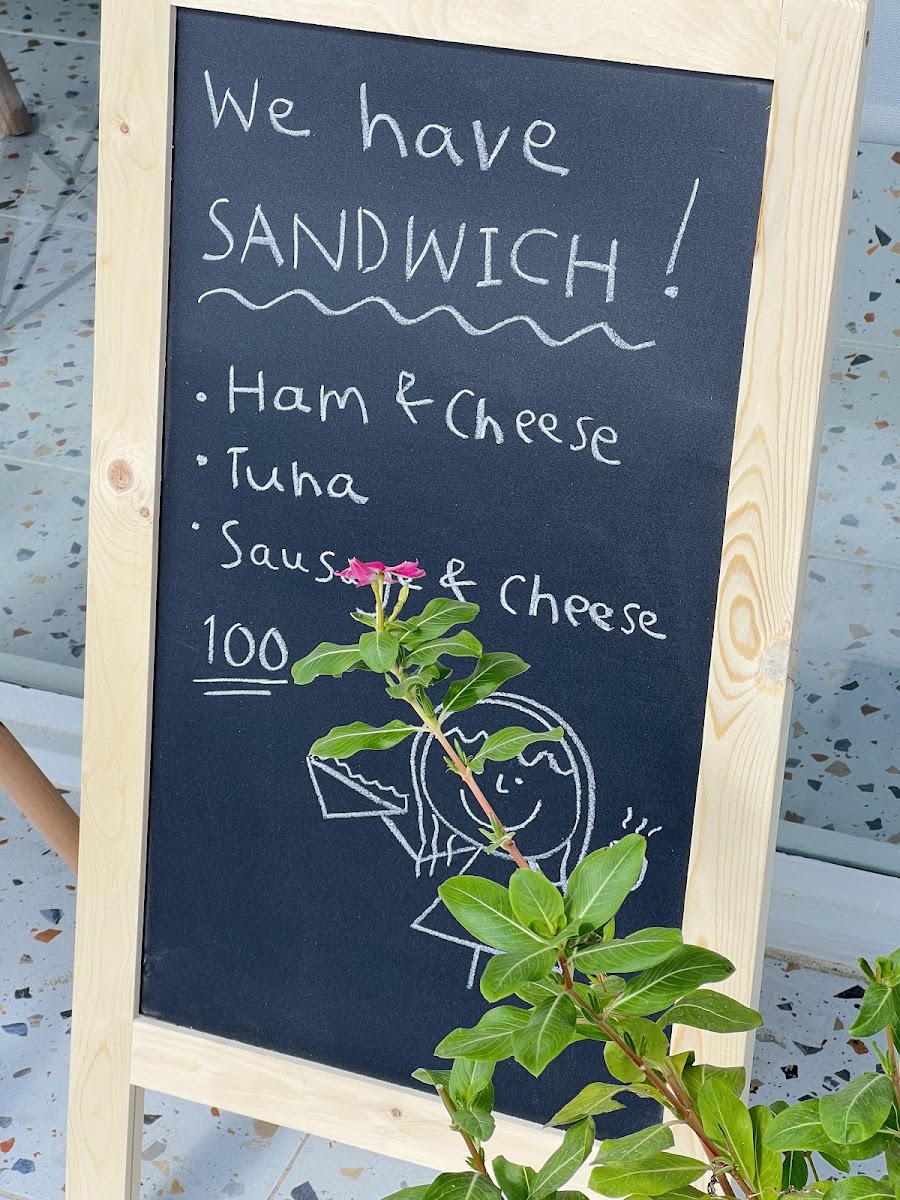 We have
SANDWICH!
• Ham & Cheese
• Tuna
• Sausage & Cheese
100